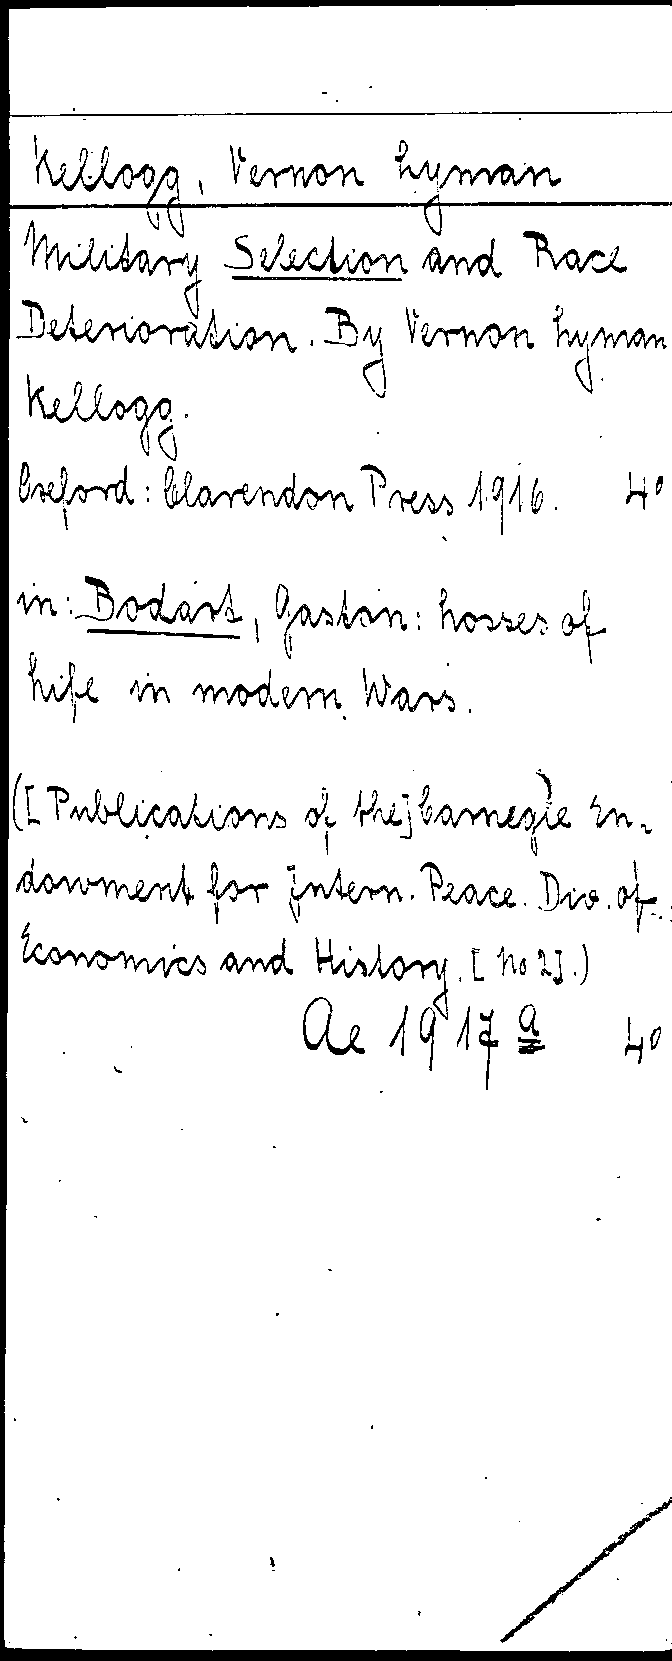 Kellogg, Vernon Lyman
Military Selection and Race
Deterioration. By Vernon Lyman
Kellogg.
Oxford: Clarendon Press 1916. 4°
in: Bodart, Gaston: Losses of
Life in modern Wars.
([Publications of the] Carnegie En-
dowment for Intern. Peace. Div. of
Economics and History. [No 2].)
Ae 1917 a 4°